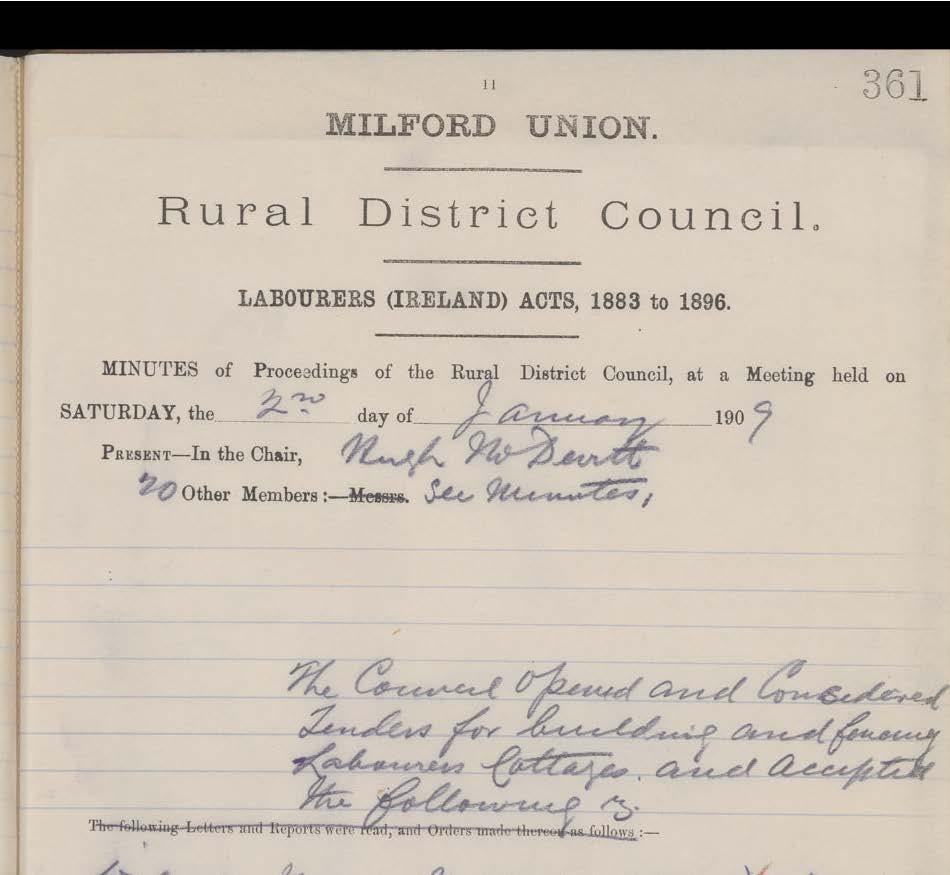 11
361
MILFORD UNION.
Rural District Council.
LABOURERS (IRELAND) ACTS, 1883 to 1896.
MINUTES of Proceedings of the Rural District Council, at a Meeting held on
SATURDAY, the 2nd day of January 1909
PRESENT—In the Chair, Hugh McDevitt
20 Other Members :—Messrs. See Minutes,
The Council Opened and Considered
Tenders for building and fencing
Labourers Cottages. and Accepted
the following
The following Letters and Reports were read, and Orders made thereon as follows :—